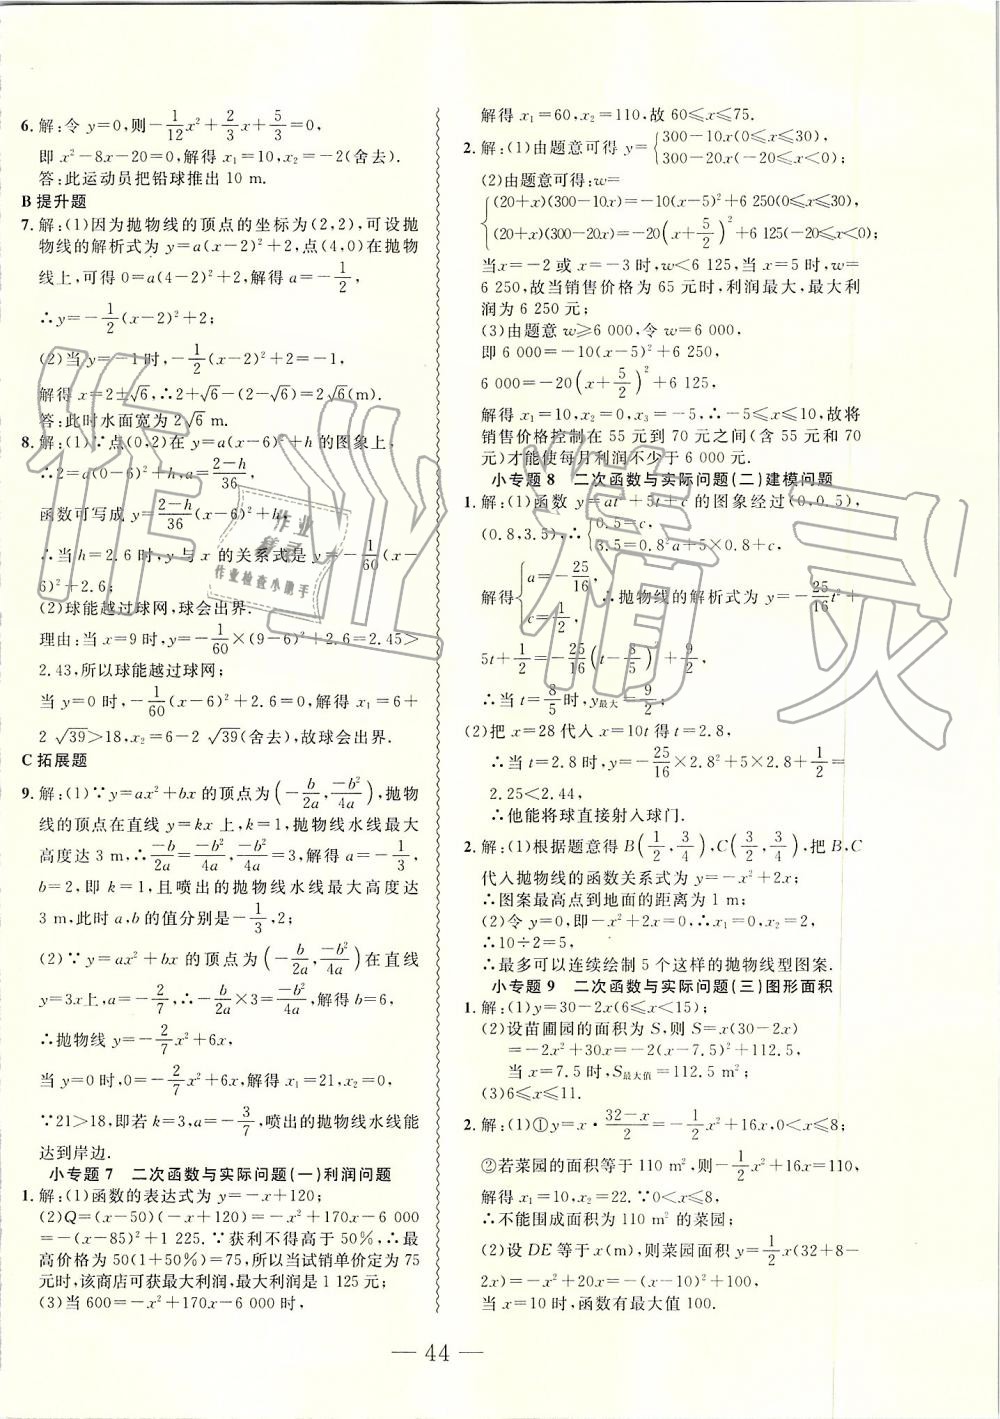 6.解:令 y=0,则-1/12x²+2/3x+5/3=0,
即 x²-8x-20=0,解得 x₁=10,x₂=-2(舍去).
答:此运动员把铅球推出 10 m.
B 提升题
7.解:(1)因为抛物线的顶点的坐标为(2,2),可设抛
物线的解析式为 y=a(x-2)²+2,点(4,0)在抛物
线上,可得 0=a(4-2)²+2,解得 a=-1/2,
∴y=-1/2(x-2)²+2;
(2)当 y=-1时,-1/2(x-2)²+2=-1,
解得 x=2±√6,∴2+√6-(2-√6)=2√6(m).
答:此时水面宽为 2√6 m.
8.解:(1)∵点(0,2)在 y=a(x-6)²+h 的图象上,
∴2=a(0-6)²+h,a=(2-h)/36,
函数可写成 y=(2-h)/36(x-6)²+h,
∴当 h=2.6 时,y 与 x 的关系式是 y=-1/60(x-
6)²+2.6;
(2)球能越过球网,球会出界.
理由:当 x=9 时,y=-1/60×(9-6)²+2.6=2.45>
2.43,所以球能越过球网;
当 y=0 时,-1/60(x-6)²+2.6=0,解得 x₁=6+
2 √39>18,x₂=6-2 √39(舍去),故球会出界.
C 拓展题
9.解:(1)∵y=ax²+bx 的顶点为(-b/2a,-b²/4a),抛物
线的顶点在直线 y=kx 上,k=1,抛物线水线最大
高度达 3 m,∴-b/2a=-b²/4a,-b²/4a=3,解得 a=-1/3,
b=2,即 k=1,且喷出的抛物线水线最大高度达
3 m,此时 a,b 的值分别是-1/3,2;
(2)∵y=ax²+bx 的顶点为(-b/2a,-b²/4a)在直线
y=3x上,a=-2/7,∴-b/2a×3=-b²/4a,解得 b=6,
∴抛物线 y=-2/7x²+6x,
当 y=0 时,0=-2/7x²+6x,解得 x₁=21,x₂=0,
∵21>18,即若 k=3,a=-2/7,喷出的抛物线水线能
达到岸边.
小专题 7 二次函数与实际问题(一)利润问题
1.解:(1)函数的表达式为 y=-x+120;
(2)Q=(x-50)(-x+120)=-x²+170x-6 000
=-(x-85)²+1 225.∵获利不得高于 50%,∴最
高价格为 50(1+50%)=75,所以当试销单价定为 75
元时,该商店可获最大利润,最大利润是 1 125 元;
(3)当 600=-x²+170x-6 000 时,
解得 x₁=60,x₂=110,故 60≤x≤75.
2.解:(1)由题意可得 y={300-10x(0≤x≤30),
300-20x(-20≤x<0);
(2)由题意可得:w=
{(20+x)(300-10x)=-10(x-5)²+6 250(0≤x≤30),
(20+x)(300-20x)=-20(x+5/2)²+6 125(-20≤x<0);
当x=-2 或 x=-3 时,w<6 125,当 x=5 时,w=
6 250,故当销售价格为 65 元时,利润最大,最大利
润为 6 250 元;
(3)由题意 w≥6 000,令 w=6 000,
即 6 000=-10(x-5)²+6 250,
6 000=-20(x+5/2)²+6 125,
解得 x₁=10,x₂=0,x₃=-5,∴-5≤x≤10,故将
销售价格控制在 55 元到 70 元之间(含 55 元和 70
元)才能使每月利润不少于 6 000 元.
小专题 8 二次函数与实际问题(二)建模问题
1.解:(1)函数 y=at²+5t+c 的图象经过(0,0.5),
(0.8,3.5),∴{0.5=c,
3.5=0.8²a+5×0.8+c,
解得{a=-25/16,
c=1/2, ∴抛物线的解析式为 y=-25/16t²+
5t+1/2=-25/16(t-8/5)²+9/2,
∴当 t=8/5时,y最大=9/2;
(2)把 x=28 代入 x=10t 得 t=2.8,
∴当 t=2.8 时,y=-25/16×2.8²+5×2.8+1/2=
2.25<2.44,
∴他能将球直接射入球门.
2.解:(1)根据题意得 B(1/2,3/4),C(3/2,3/4),把 B、C
代入抛物线的函数关系式为 y=-x²+2x=
∴图案最高点到地面的距离为 1 m;
(2)令 y=0,即-x²+2x=0,∴x₁=0,x₂=2,
∴10÷2=5,
∴最多可以连续绘制 5 个这样的抛物线型图案.
小专题 9 二次函数与实际问题(三)图形面积
1.解:(1)y=30-2x(6≤x<15);
(2)设苗圃园的面积为 S,则 S=x(30-2x)
=-2x²+30x=-2(x-7.5)²+112.5,
当 x=7.5 时,S最大值=112.5 m²;
(3)6≤x≤11.
2.解:(1)①y=x·(32-x)/2=-1/2x²+16x,0<x≤8;
②若菜园的面积等于 110 m²,则-1/2x²+16x=110,
解得 x₁=10,x₂=22.∵0<x≤8,
∴不能围成面积为 110 m² 的菜园;
(2)设 DE 等于 x(m),则菜园面积 y=1/2x(32+8-
2x)=-x²+20x=-(x-10)²+100,
当 x=10 时,函数有最大值 100.
— 44 —
作业精灵
作业
精灵
作业检查小助手